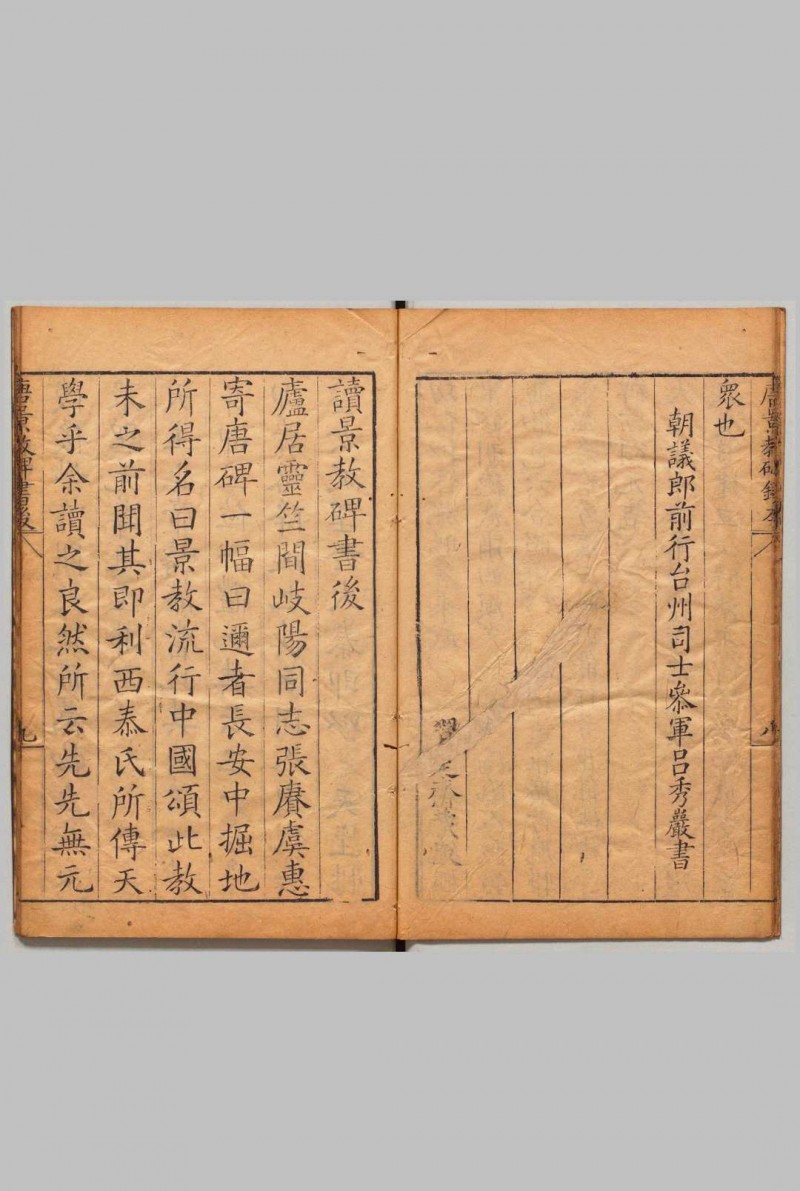 唐景教碑
八
衆也
朝議郎前行台州司士叅軍呂秀巖書
讀景教碑書後
廬居靈竺間岐陽同志張賡虞惠
寄唐碑一幅曰邇者長安中掘地
所得名曰景教流行中國頌此教
未之前聞其即利西泰氏所傳天
學乎余讀之良然所云先先無元
唐景教碑書後
九